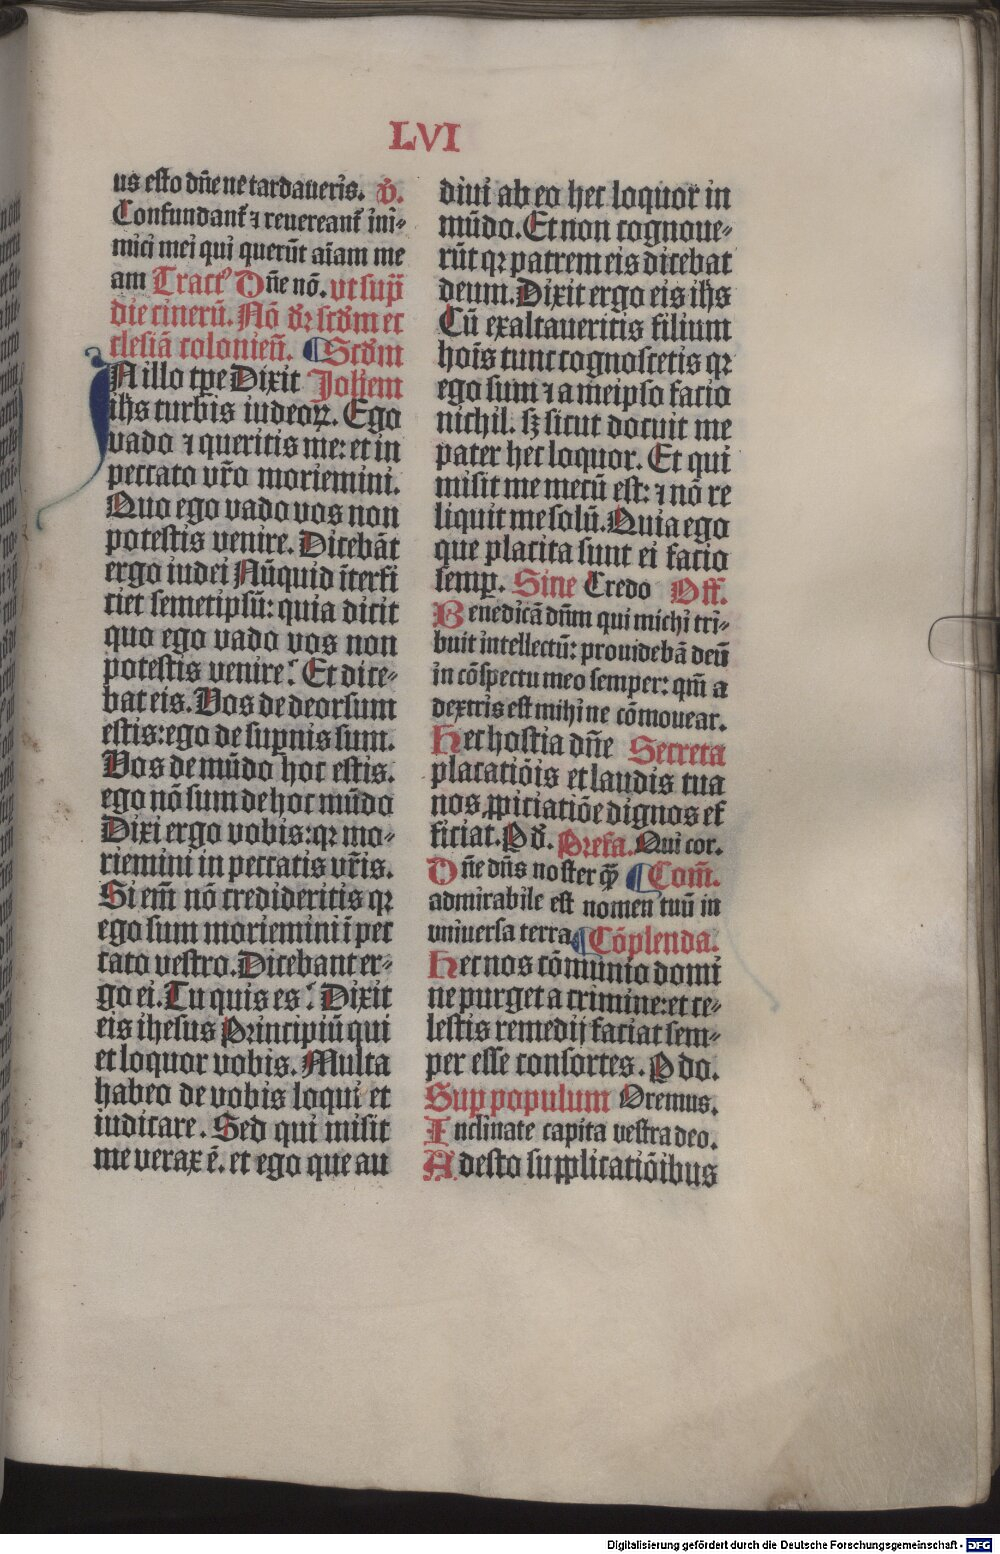 LVI
us esto dñe ne tardaueris. V̄.
Confundant̄ ⁊ reuereant̄ ini-
mici mei qui querūt aīam me
am Tract⁹ Dñe nō. vt sup̄
die cinerū. Nō dr̄ scd̄m ec
clesiā colonieñ. ¶Scd̄m
IN illo tp̄e Dixit Joh̄em
ih̄s turbis iudeoꝝ. Ego
vado ⁊ queritis me: et in
peccato vr̄o moriemini.
Quo ego vado vos non
potestis venire. Dicebāt
ergo iudei Nūquid īterfi
ciet semetipsū: quia dicit
quo ego vado vos non
potestis venire? Et dice-
bat eis. Vos de deorsum
estis: ego de supnis sum.
Vos de mūdo hoc estis.
ego nō sum de hoc mūdo
Dixi ergo vobis: qꝛ mo-
riemini in peccatis vr̄is.
Si em̄ nō credideritis qꝛ
ego sum moriemini ī pec
cato vestro. Dicebant er-
go ei. Tu quis es? Dixit
eis ihesus Principiū qui
et loquor vobis. Multa
habeo de vobis loqui et
iudicare. Sed qui misit
me verax ē. et ego que au
diui ab eo hec loquor in
mūdo. Et non cognoue-
rūt qꝛ patrem eis dicebat
deum. Dixit ergo eis ih̄s
Cū exaltaueritis filium
hoīs tunc cognoscetis qꝛ
ego sum ⁊ a meipso facio
nichil. sꝫ sicut docuit me
pater hec loquor. Et qui
misit me mecū est: ⁊ nō re
liquit me solū. Quia ego
que placita sunt ei facio
semp̲. Sine Credo Off.
Benedicā dñm qui michi tri-
buit intellectū: prouidebā deū
in cōspectu meo semper: qm̄ a
dextris est mihi ne cōmouear.
Hec hostia dñe Secreta
placatiōis et laudis tua
nos ꝓpiciatiōe dignos ef
ficiat. P d̄. Prefa. Qui cor.
Dñe dñs noster qꝫ̄ ¶Com̄.
admirabile est nomen tuū in
uniuersa terra ¶Cōplenda.
Hec nos cōmunio domi
ne purget a crimine: et ce-
lestis remedij faciat sem-
per esse consortes. P do.
Sup populum Oremus.
Inclinate capita vestra deo.
Adesto supplicatiōibus
Digitalisierung gefördert durch die Deutsche Forschungsgemeinschaft - DFG